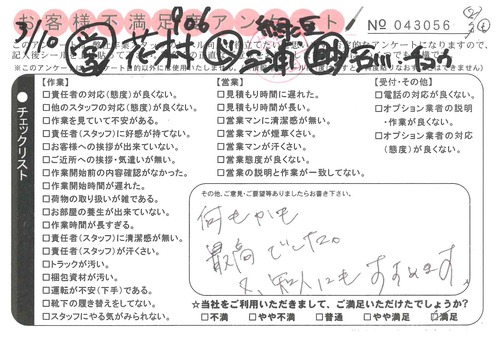 お客様不満足度アンケート
No 043056
3/10
906
【作業】
□責任者の対応(態度)が良くない。
□他のスタッフの対応(態度)が良くない。
□作業を見ていて不安がある。
□責任者(スタッフ)に好感が持てない。
□お客様への挨拶が出来ていない。
□ご近所への挨拶・気遣いが無い。
□作業開始前の内容確認がなかった。
□作業開始時間が遅れた。
□荷物の取り扱いが雑である。
□お部屋の養生が出来ていない。
□作業時間が長すぎる。
□責任者(スタッフ)に清潔感が無い。
□責任者(スタッフ)が汗くさい。
□トラックが汚い。
□梱包資材が汚い。
□運転が不安(下手)である。
□靴下の履き替えをしてない。
□スタッフにやる気がみられない。
【営業】
□見積もり時間に遅れた。
□見積もり時間が長い。
□営業マンに清潔感が無い。
□営業マンが煙草くさい。
□営業マンが汗くさい。
□営業態度が良くない。
□営業の説明と作業が一致してない。
【受付・その他】
□電話の対応が良くない。
□オプション業者の説明
・作業が良くない。
□オプション業者の対応
(態度)が良くない。
チェックリスト
その他、ご意見・ご要望等ありましたらお書き下さい。
何もかも
最高でした。
又、知人にもすすめます。
☆当社をご利用いただきまして、ご満足いただけたでしょうか?
□不満 □やや不満 □普通 □やや満足 □満足